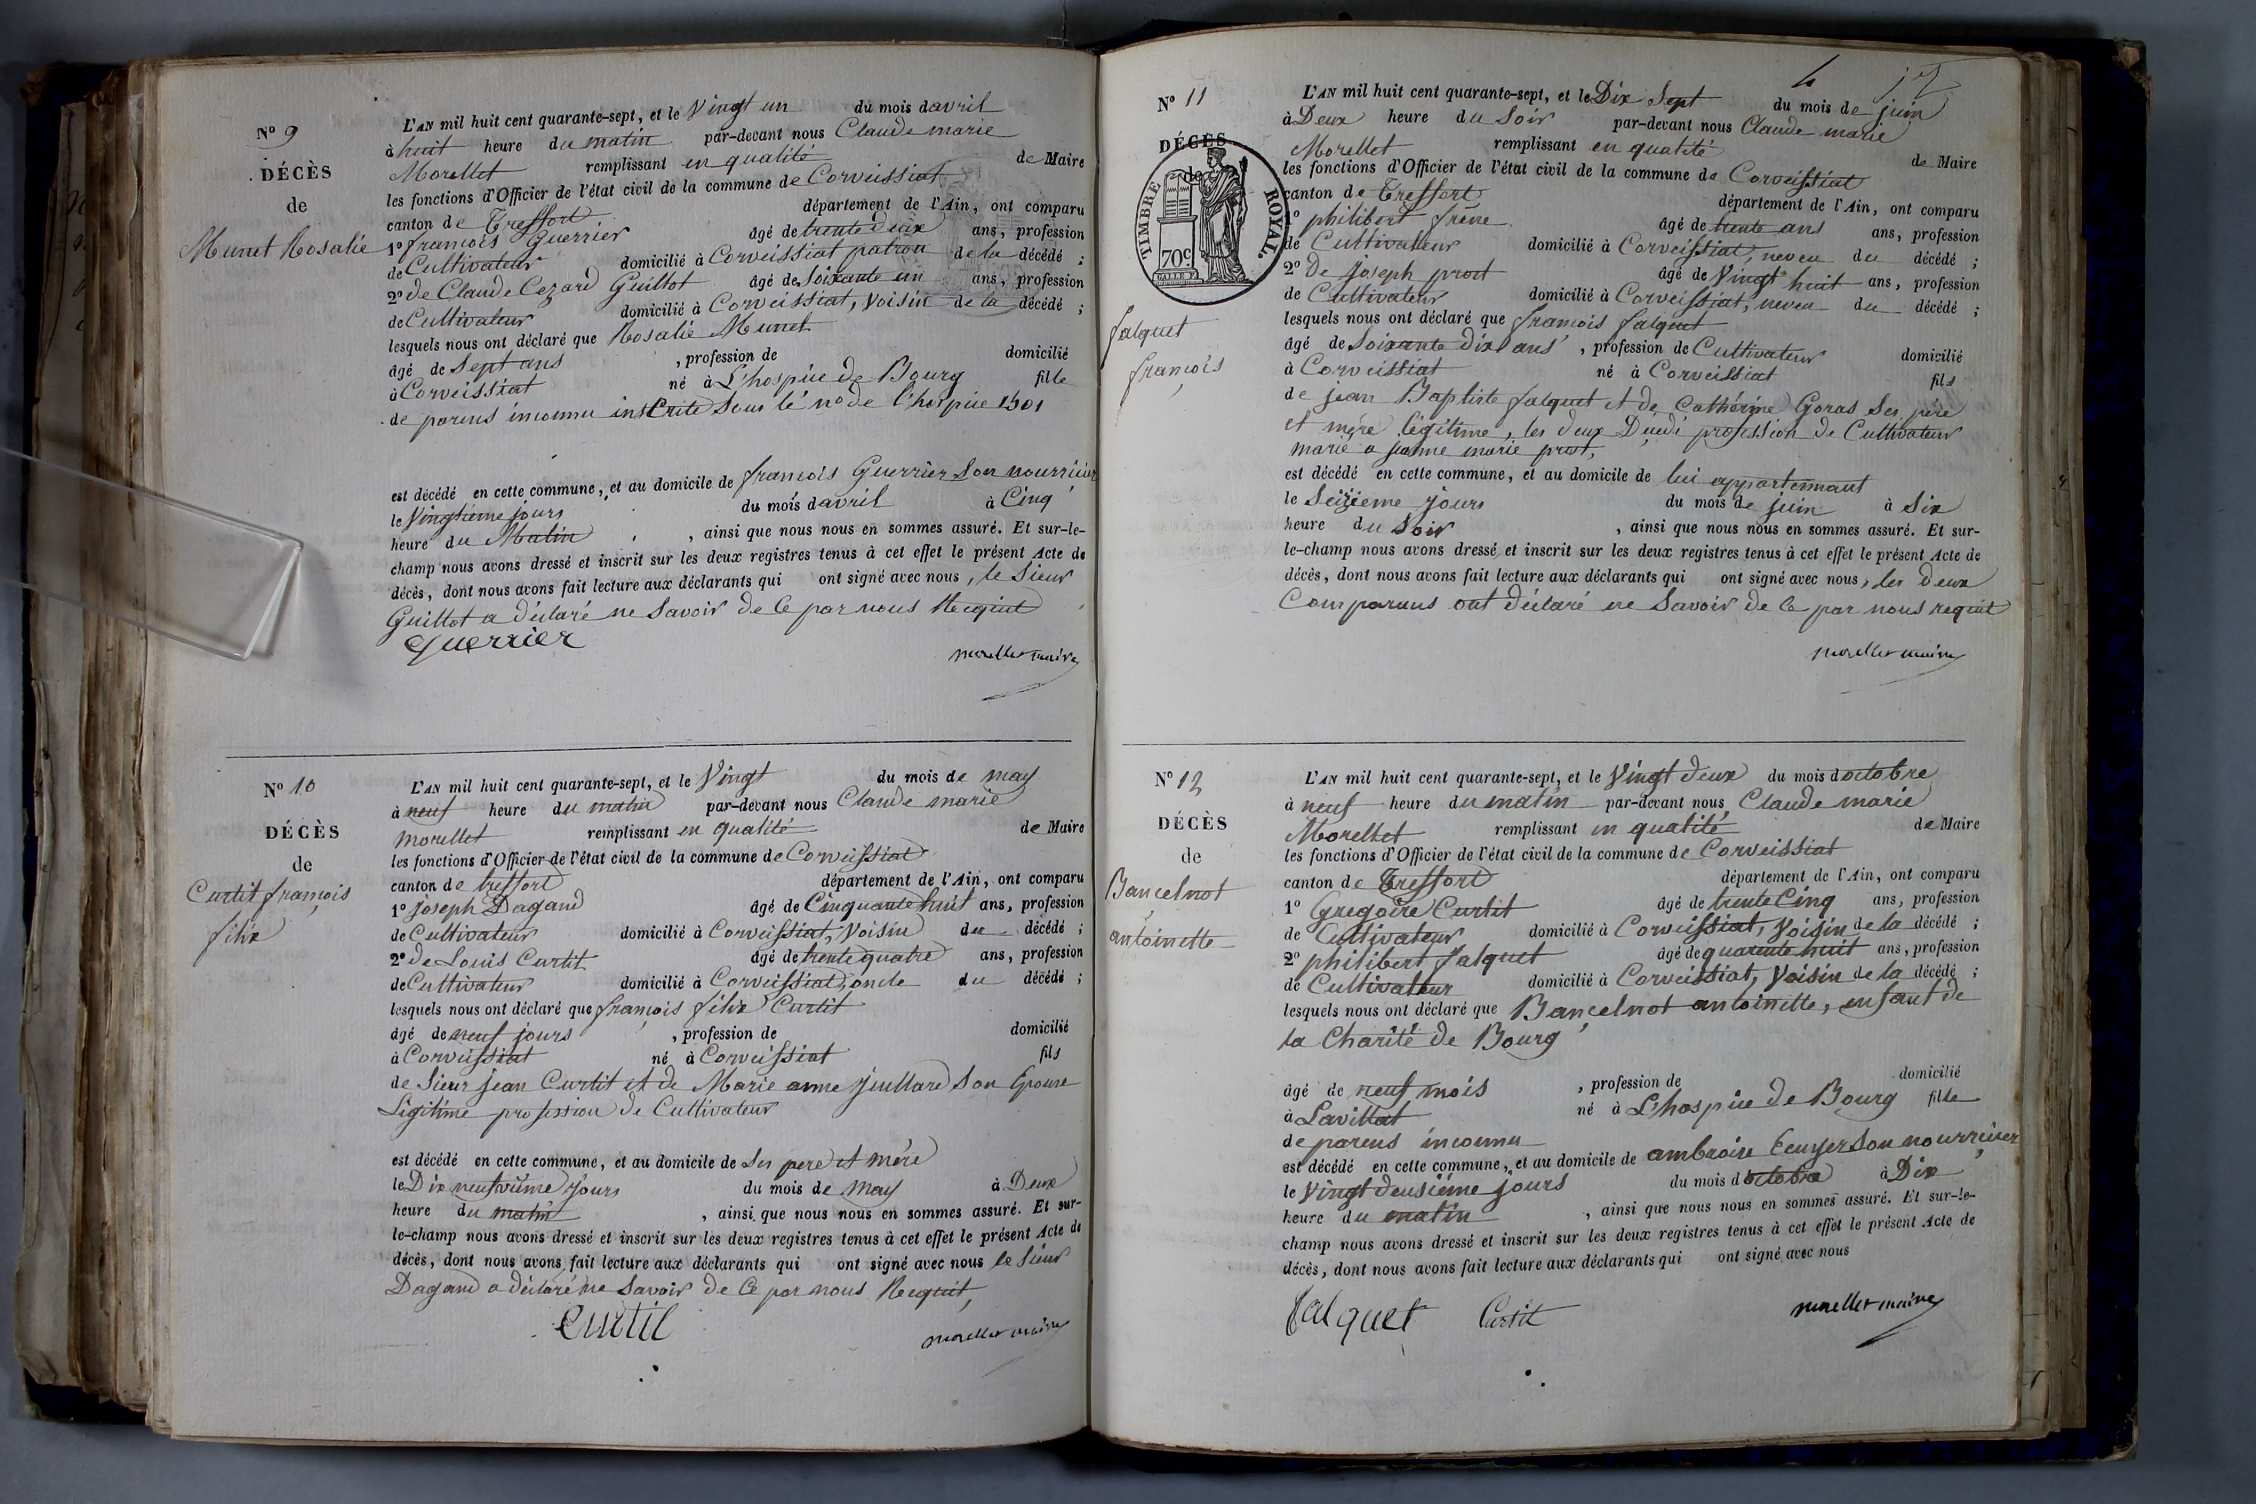 Nº 9
DÉCÈS
de
Munet Rosalie
L'AN mil huit cent quarante-sept, et le Vingt un du mois d avril
à huit heure du matin par-devant nous Claude marie
Morellet remplissant en qualité de Maire
les fonctions d'Officier de l'état civil de la commune de Corveissiat
canton de Treffort département de l'Ain, ont comparu
1º françois Guerrier âgé de trente deux ans, profession
de Cultivateur domicilié à Corveissiat patron de la décédé ;
2º de Claude Cezard Guillot âgé de Soixante un ans, profession
de Cultivateur domicilié à Corveissiat, Voisin de la décédé ;
lesquels nous ont déclaré que Rosalie Munet
âgé de Sept ans , profession de domicilié
à Corveissiat né à L'hospice de Bourg fille
de parens inconnu inscrite Sous le nº de l'hospice 1501
est décédé en cette commune, et au domicile de françois Guerrier Son nourricier
le Vingtieme jours du mois d avril à Cinq
heure du Matin , ainsi que nous nous en sommes assuré. Et sur-le-
champ nous avons dressé et inscrit sur les deux registres tenus à cet effet le présent Acte de
décès, dont nous avons fait lecture aux déclarants qui ont signé avec nous, le Sieur
Guillot a déclaré ne Savoir de Ce par nous Requit
Guerrier
morellet maire
Nº 10
DÉCÈS
de
Curtit françois
félix
L'AN mil huit cent quarante-sept, et le Vingt du mois de may
à neuf heure du matin par-devant nous Claude marie
morellet remplissant en qualité de Maire
les fonctions d'Officier de l'état civil de la commune de Corveissiat
canton de treffort département de l'Ain, ont comparu
1º joseph Dagand âgé de Cinquante huit ans, profession
de Cultivateur domicilié à Corveissiat, Voisin du décédé ;
2º de Louis Curtit âgé de trente quatre ans, profession
de Cultivateur domicilié à Corveissiat, oncle du décédé ;
lesquels nous ont déclaré que françois félix Curtit
âgé de neuf jours , profession de domicilié
à Corveissiat né à Corveissiat fils
de Sieur jean Curtit et de Marie anne juillard Son Epouse
Légitime profession de Cultivateur
est décédé en cette commune, et au domicile de Ses pere et mére
le Dix neufvième jours du mois de May à Deux
heure du matin , ainsi que nous nous en sommes assuré. Et sur-
le-champ nous avons dressé et inscrit sur les deux registres tenus à cet effet le présent Acte de
décès, dont nous avons fait lecture aux déclarants qui ont signé avec nous le Sieur
Dagand a déclaré ne Savoir de Ce par nous Requit,
Curtit
morellet maire
4
Nº 11
DÉCÈS
de
TIMBRE ROYAL.
70c
falquet
françois
L'AN mil huit cent quarante-sept, et le Dix Sept du mois de juin
à Deux heure du Soir par-devant nous Claude marie
Morellet remplissant en qualité de Maire
les fonctions d'Officier de l'état civil de la commune de Corveissiat
canton de Treffort département de l'Ain, ont comparu
1º philibert frène âgé de trente ans ans, profession
de Cultivateur domicilié à Corveissiat, neveu du décédé ;
2º De joseph prost âgé de Vingt huit ans, profession
de Cultivateur domicilié à Corveissiat, neveu du décédé ;
lesquels nous ont déclaré que françois falquet
âgé de Soixante dix ans , profession de Cultivateur domicilié
à Corveissiat né à Corveissiat fils
de jean Baptiste falquet et de Cathérine Goras Ses père
et mére légitime, les deux Décédé profession de Cultivateur
marié a jeanne marie prost,
est décédé en cette commune, et au domicile de lui appartennant
le Seizieme jours du mois de juin à Six
heure du Soir , ainsi que nous nous en sommes assuré. Et sur-
le-champ nous avons dressé et inscrit sur les deux registres tenus à cet effet le présent Acte de
décès, dont nous avons fait lecture aux déclarants qui ont signé avec nous, les deux
Comparans ont déclaré ne Savoir de Ce par nous requit
morellet maire
Nº 12
DÉCÈS
de
Bancelnot
antoinette
L'AN mil huit cent quarante-sept, et le Vingt deux du mois d octobre
à neuf heure du matin par-devant nous Claude marie
Morellet remplissant en qualité de Maire
les fonctions d'Officier de l'état civil de la commune de Corveissiat
canton de Treffort département de l'Ain, ont comparu
1º Gregoire Curtit âgé de trente Cinq ans, profession
de Cultivateur domicilié à Corveissiat, Voisin de la décédé ;
2º philibert falquet âgé de quarente huit ans, profession
de Cultivateur domicilié à Corveissiat, Voisin de la décédé ;
lesquels nous ont déclaré que Bancelnot antoinette, enfant de
la Charité de Bourg
âgé de neuf mois , profession de domicilié
à Lavillat né à L'hospice de Bourg fille
de parens inconnu
est décédé en cette commune, et au domicile de ambroise Ecuyer Son nourricier
le Vingt deusiéme jours du mois d octobre à Dix
heure du matin , ainsi que nous nous en sommes assuré. Et sur-le-
champ nous avons dressé et inscrit sur les deux registres tenus à cet effet le présent Acte de
décès, dont nous avons fait lecture aux déclarants qui ont signé avec nous
falquet Curtit
morellet maire